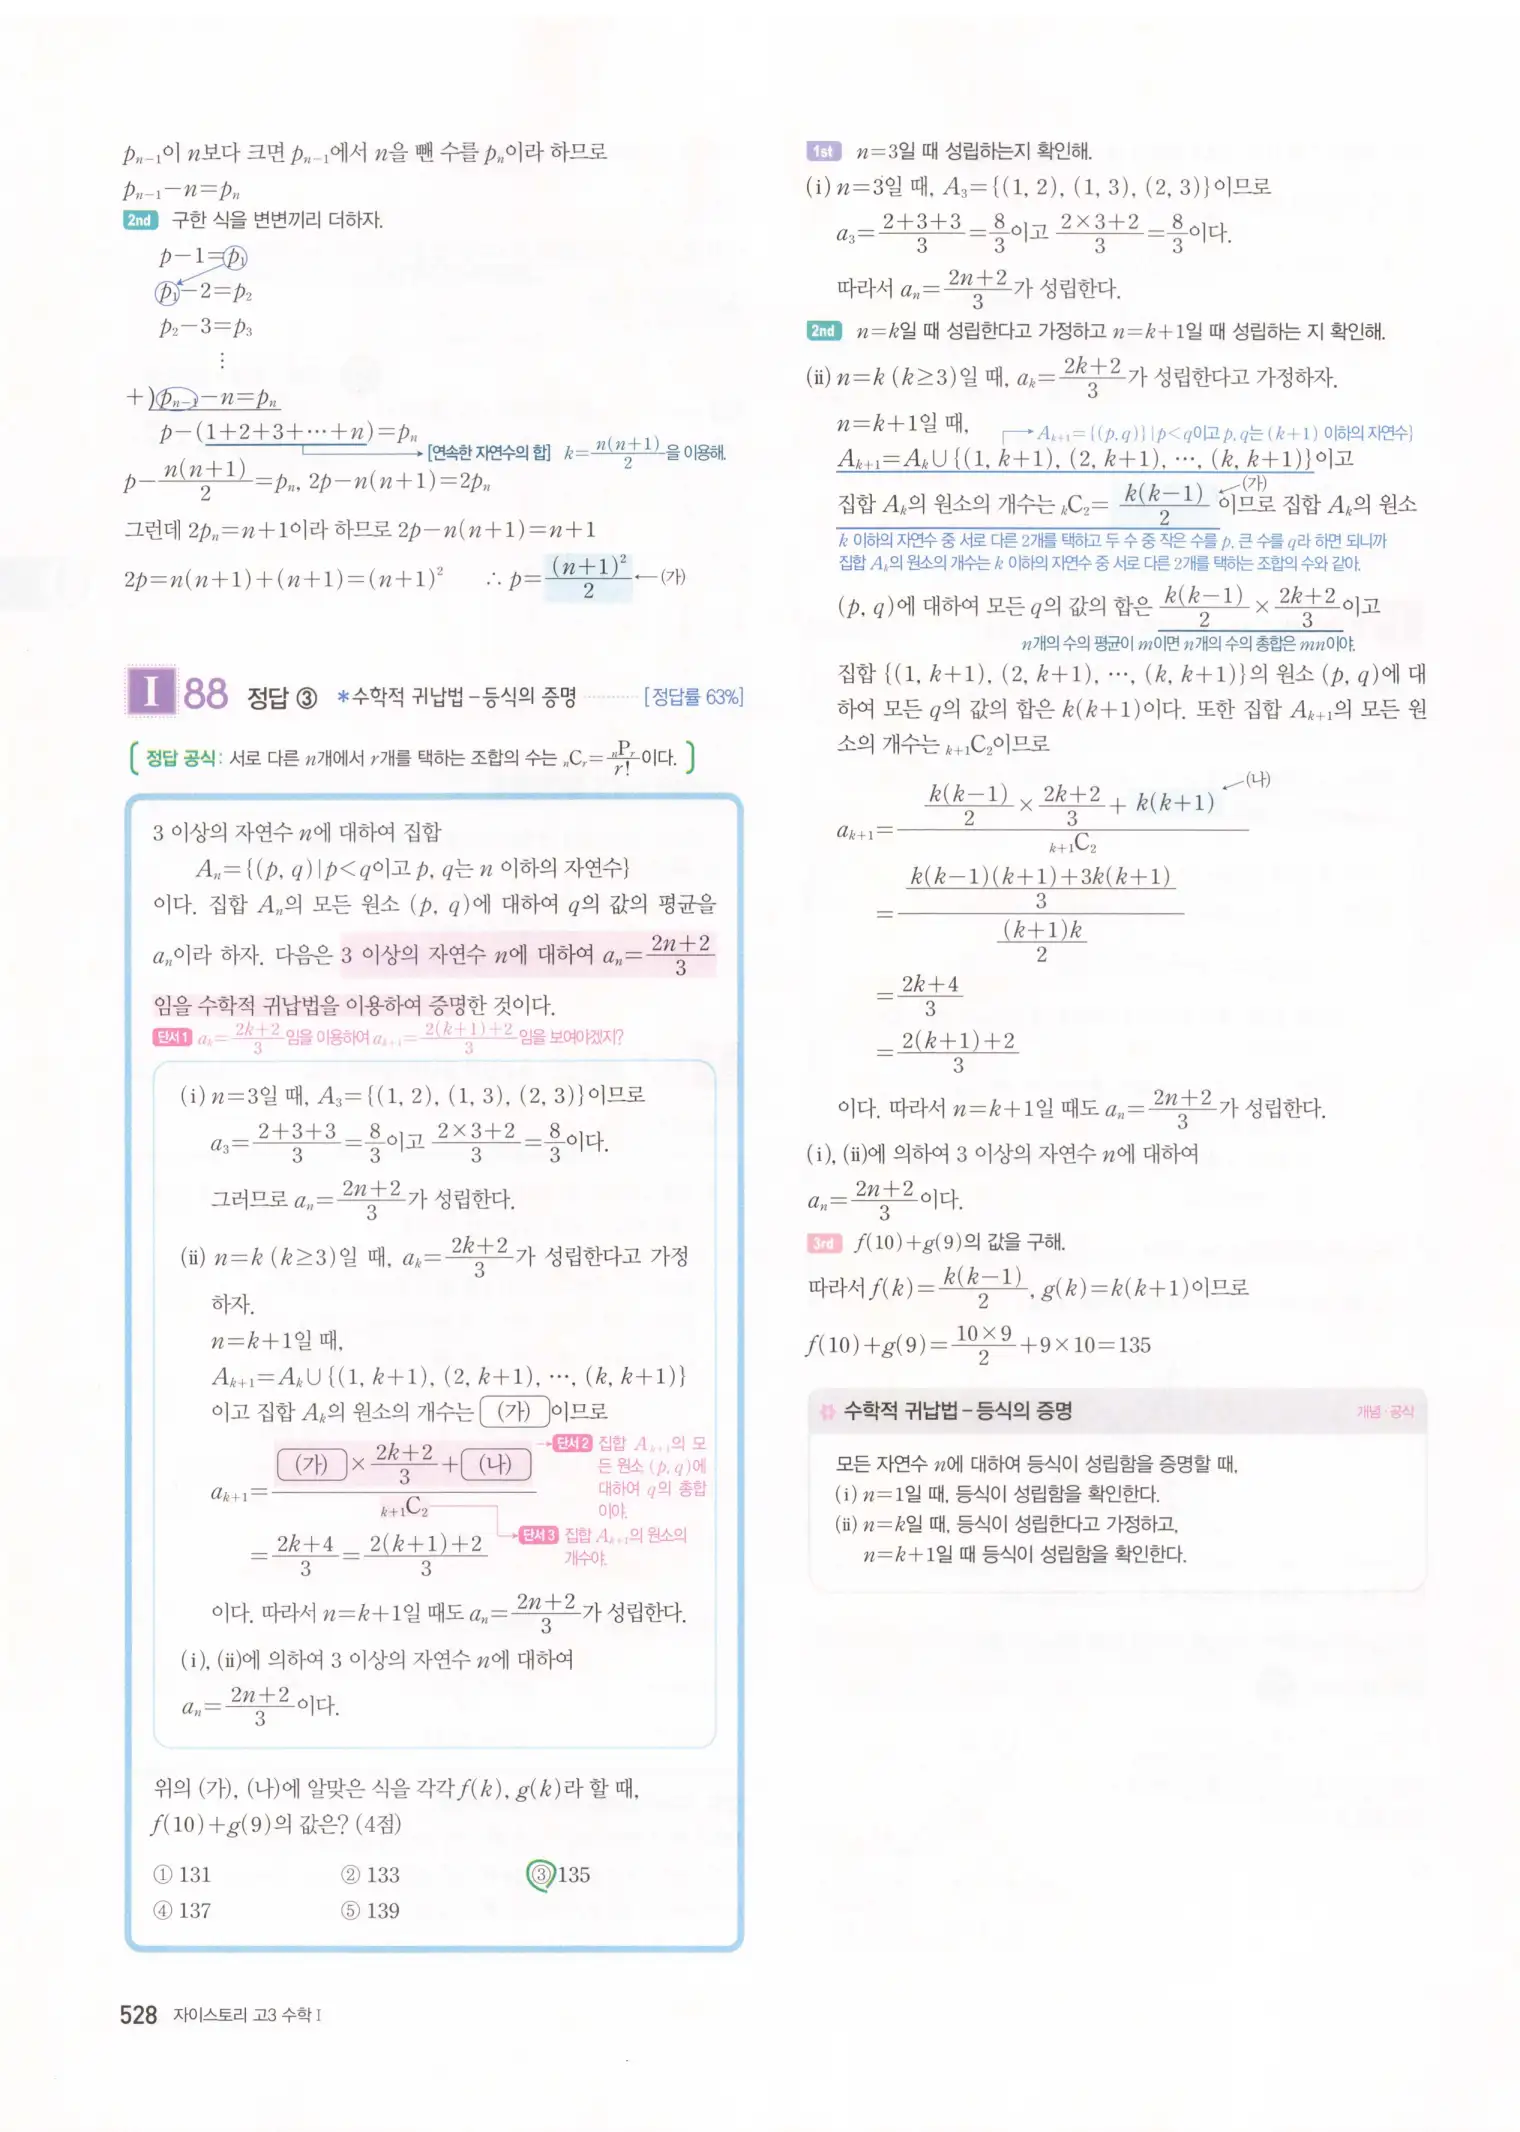 pₙ₋₁이 n보다 크면 pₙ₋₁에서 n을 뺀 수를 pₙ이라 하므로
pₙ₋₁−n=pₙ
2nd 구한 식을 변변끼리 더하자.
p−1=p₁
p₁−2=p₂
p₂−3=p₃
⋮
+)pₙ₋₁−n=pₙ
p−(1+2+3+⋯+n)=pₙ
[연속한 자연수의 합] k=n(n+1)/2을 이용해.
p−n(n+1)/2=pₙ, 2p−n(n+1)=2pₙ
그런데 2pₙ=n+1이라 하므로 2p−n(n+1)=n+1
2p=n(n+1)+(n+1)=(n+1)² ∴ p=(n+1)²/2 ←(가)
I 88 정답 ③ *수학적 귀납법-등식의 증명 [정답률 63%]
정답 공식: 서로 다른 n개에서 r개를 택하는 조합의 수는 ₙCᵣ=ₙPᵣ/r!이다.
3 이상의 자연수 n에 대하여 집합
Aₙ={(p, q)|p<q이고 p, q는 n 이하의 자연수}
이다. 집합 Aₙ의 모든 원소 (p, q)에 대하여 q의 값의 평균을
aₙ이라 하자. 다음은 3 이상의 자연수 n에 대하여 aₙ=(2n+2)/3
임을 수학적 귀납법을 이용하여 증명한 것이다.
단서1 aₖ=(2k+2)/3임을 이용하여 aₖ₊₁=(2(k+1)+2)/3임을 보여야겠지?
(i) n=3일 때, A₃={(1, 2), (1, 3), (2, 3)}이므로
a₃=(2+3+3)/3=8/3이고 (2×3+2)/3=8/3이다.
그러므로 aₙ=(2n+2)/3가 성립한다.
(ii) n=k (k≥3)일 때, aₖ=(2k+2)/3가 성립한다고 가정
하자.
n=k+1일 때,
Aₖ₊₁=Aₖ∪{(1, k+1), (2, k+1), ⋯, (k, k+1)}
이고 집합 Aₖ의 원소의 개수는 (가) 이므로
aₖ₊₁=((가)×(2k+2)/3+(나))/ₖ₊₁C₂
단서2 집합 Aₖ₊₁의 모
든 원소 (p, q)에
대하여 q의 총합
이야.
단서3 집합 Aₖ₊₁의 원소의
개수야.
=(2k+4)/3=(2(k+1)+2)/3
이다. 따라서 n=k+1일 때도 aₙ=(2n+2)/3가 성립한다.
(i), (ii)에 의하여 3 이상의 자연수 n에 대하여
aₙ=(2n+2)/3이다.
위의 (가), (나)에 알맞은 식을 각각 f(k), g(k)라 할 때,
f(10)+g(9)의 값은? (4점)
① 131 ② 133 ③ 135
④ 137 ⑤ 139
528 자이스토리 고3 수학 I
1st n=3일 때 성립하는지 확인해.
(i) n=3일 때, A₃={(1, 2), (1, 3), (2, 3)}이므로
a₃=(2+3+3)/3=8/3이고 (2×3+2)/3=8/3이다.
따라서 aₙ=(2n+2)/3가 성립한다.
2nd n=k일 때 성립한다고 가정하고 n=k+1일 때 성립하는 지 확인해.
(ii) n=k (k≥3)일 때, aₖ=(2k+2)/3가 성립한다고 가정하자.
n=k+1일 때,
Aₖ₊₁={(p, q)|p<q이고 p, q는 (k+1) 이하의 자연수}
Aₖ₊₁=Aₖ∪{(1, k+1), (2, k+1), ⋯, (k, k+1)}이고
집합 Aₖ의 원소의 개수는 ₖC₂=k(k−1)/2 (가) 이므로 집합 Aₖ의 원소
k 이하의 자연수 중 서로 다른 2개를 택하고 두 수 중 작은 수를 p, 큰 수를 q라 하면 되니까
집합 Aₖ의 원소의 개수는 k 이하의 자연수 중 서로 다른 2개를 택하는 조합의 수와 같아.
(p, q)에 대하여 모든 q의 값의 합은 k(k−1)/2×(2k+2)/3이고
n개의 수의 평균이 m이면 n개의 수의 총합은 mn이야.
집합 {(1, k+1), (2, k+1), ⋯, (k, k+1)}의 원소 (p, q)에 대
하여 모든 q의 값의 합은 k(k+1)이다. 또한 집합 Aₖ₊₁의 모든 원
소의 개수는 ₖ₊₁C₂이므로
aₖ₊₁=(k(k−1)/2×(2k+2)/3+k(k+1))/ₖ₊₁C₂ (나)
=((k(k−1)(k+1)+3k(k+1))/3)/((k+1)k/2)
=(2k+4)/3
=(2(k+1)+2)/3
이다. 따라서 n=k+1일 때도 aₙ=(2n+2)/3가 성립한다.
(i), (ii)에 의하여 3 이상의 자연수 n에 대하여
aₙ=(2n+2)/3이다.
3rd f(10)+g(9)의 값을 구해.
따라서 f(k)=k(k−1)/2, g(k)=k(k+1)이므로
f(10)+g(9)=(10×9)/2+9×10=135
수학적 귀납법-등식의 증명 개념·공식
모든 자연수 n에 대하여 등식이 성립함을 증명할 때,
(i) n=1일 때, 등식이 성립함을 확인한다.
(ii) n=k일 때, 등식이 성립한다고 가정하고,
n=k+1일 때 등식이 성립함을 확인한다.